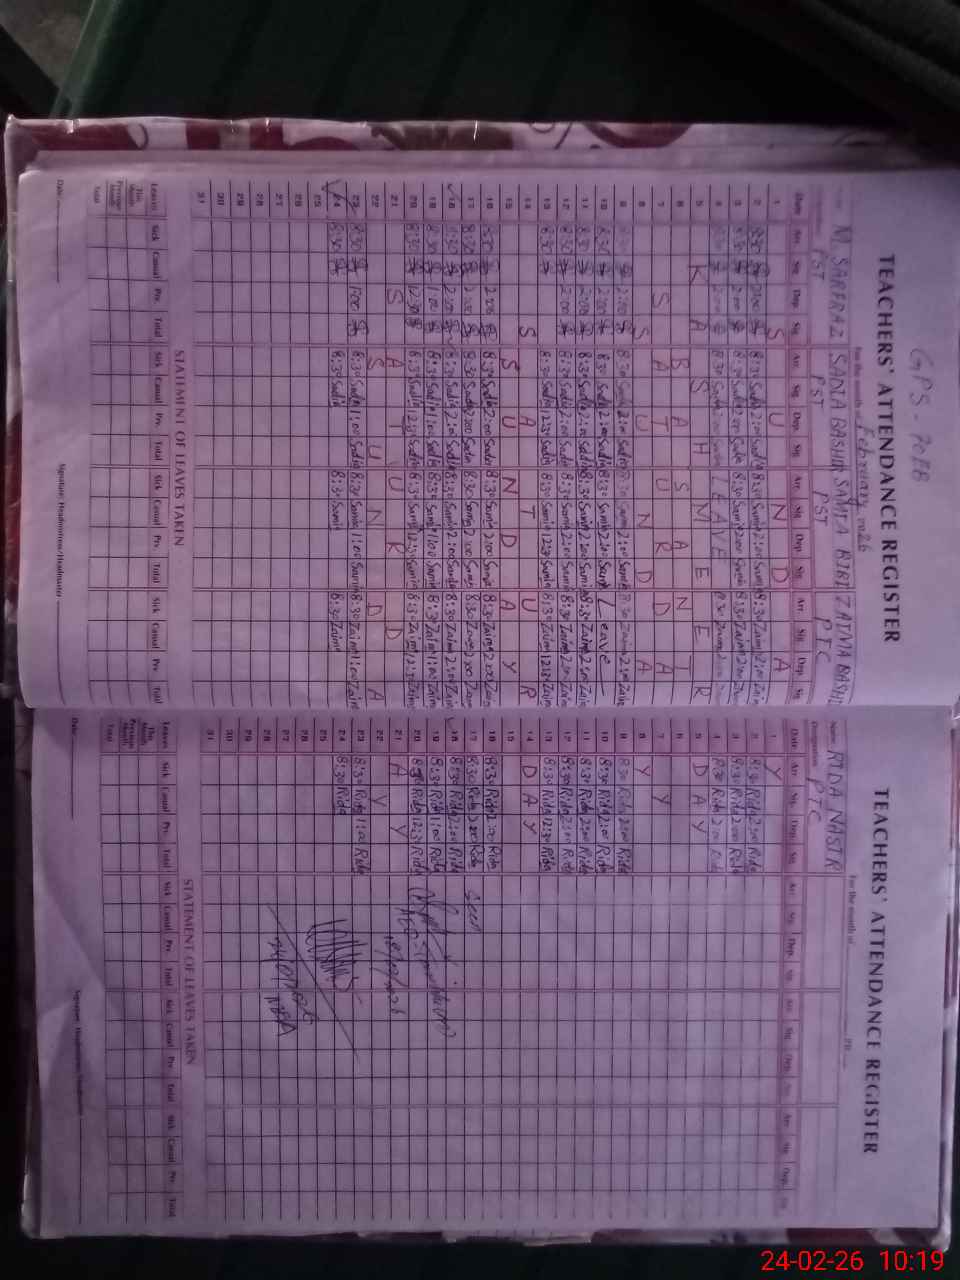 GPS - 70FB
TEACHERS' ATTENDANCE REGISTER
For the month of February 2026
M. SARFRAZ SANIA BASHIR SAMIA BIBI ZAINA BASHIR
PST PST PST PTC
Date Arr. Sig. Dep. Sig. Arr. Sig. Dep. Sig. Arr. Sig. Dep. Sig. Arr. Sig. Dep. Sig.
1 S U N D A
2 8:30 2:00 8:30 Sadia 2:00 Sadia 8:30 Samia 2:00 Samia 8:30 Zaina 2:00 Zaina
3 8:30 2:00 8:30 Sadia 2:00 Sadia 8:30 Samia 2:00 Samia 8:30 Zaina 2:00 Zaina
4 8:30 2:00 8:30 LEAVE 8:30 Zaina 2:00 Zaina
5 K A S H M E R
6 B A S A N T
7 S A T U R D A
8 S U N D A
9 8:30 2:00 8:30 Sadia 2:00 Sadia 8:30 Samia 2:00 Samia 8:30 Zaina 2:00 Zaina
10 8:30 2:00 8:30 Sadia 2:00 Sadia 8:30 Samia 2:00 Samia Leave
11 8:30 2:00 8:30 Sadia 2:00 Sadia 8:30 Samia 2:00 Samia 8:30 Zaina 2:00 Zaina
12 8:30 2:00 8:30 Sadia 2:00 Sadia 8:30 Samia 2:00 Samia 8:30 Zaina 2:00 Zaina
13 8:30 8:30 Sadia 12:30 Sadia 8:30 Samia 12:30 Samia 8:30 Zaina 12:30 Zaina
14 S A T U R
15 S U N D A Y
16 8:30 2:00 8:30 Sadia 2:00 Sadia 8:30 Samia 2:00 Samia 8:30 Zaina 2:00 Zaina
17 8:30 2:00 8:30 Sadia 2:00 Sadia 8:30 Samia 2:00 Samia 8:30 Zaina 2:00 Zaina
18 8:30 2:00 8:30 Sadia 2:00 Sadia 8:30 Samia 2:00 Samia 8:30 Zaina 2:00 Zaina
19 8:30 1:00 8:30 Sadia 1:00 Sadia 8:30 Samia 1:00 Samia 8:30 Zaina 1:00 Zaina
20 8:30 12:30 8:30 Sadia 12:30 Sadia 8:30 Samia 12:30 Samia 8:30 Zaina 12:30 Zaina
21 S A T U R D
22 S U N D A
23 8:30 1:00 8:30 Sadia 1:00 Sadia 8:30 Samia 1:00 Samia 8:30 Zaina 1:00 Zaina
24 8:30 8:30 Sadia 8:30 Samia 8:30 Zaina
25
26
27
28
29
30
31
STATEMENT OF LEAVES TAKEN
Leaves Sick Casual Prv. Total Sick Casual Prv. Total Sick Casual Prv. Total Sick Casual Prv. Total
This Month
Previous Month
Total
Date
Signature, Headmistress/Headmaster
TEACHERS' ATTENDANCE REGISTER
For the month of 20
Name RIDA NASIR
Designation PTC
Date Arr. Sig. Dep. Sig. Arr. Sig. Dep. Sig. Arr. Sig. Dep. Sig. Arr. Sig. Dep. Sig.
1 Y
2 8:30 Rida 2:00 Rida
3 8:30 Rida 2:00 Rida
4 8:30 Rida 2:00 Rida
5 D A Y
6
7 Y
8 Y
9 8:30 Rida 2:00 Rida
10 8:30 Rida 2:00 Rida
11 8:30 Rida 2:00 Rida
12 8:30 Rida 2:00 Rida
13 8:30 Rida 12:30 Rida
14 D A Y
15
16 8:30 Rida 2:00 Rida
17 8:30 Rida 2:00 Rida Seen
18 8:30 Rida 2:00 Rida
19 8:30 Rida 1:00 Rida
20 8:30 Rida 12:30 Rida
21 A Y
22 Y
23 8:30 Rida 1:00 Rida
24 8:30 Rida
25
26
27
28
29
30
31
STATEMENT OF LEAVES TAKEN
Leaves Sick Casual Prv. Total Sick Casual Prv. Total Sick Casual Prv. Total Sick Casual Prv. Total
This Month
Previous Month
Total
Date
Signature, Headmistress/Headmaster
24-02-26 10:19